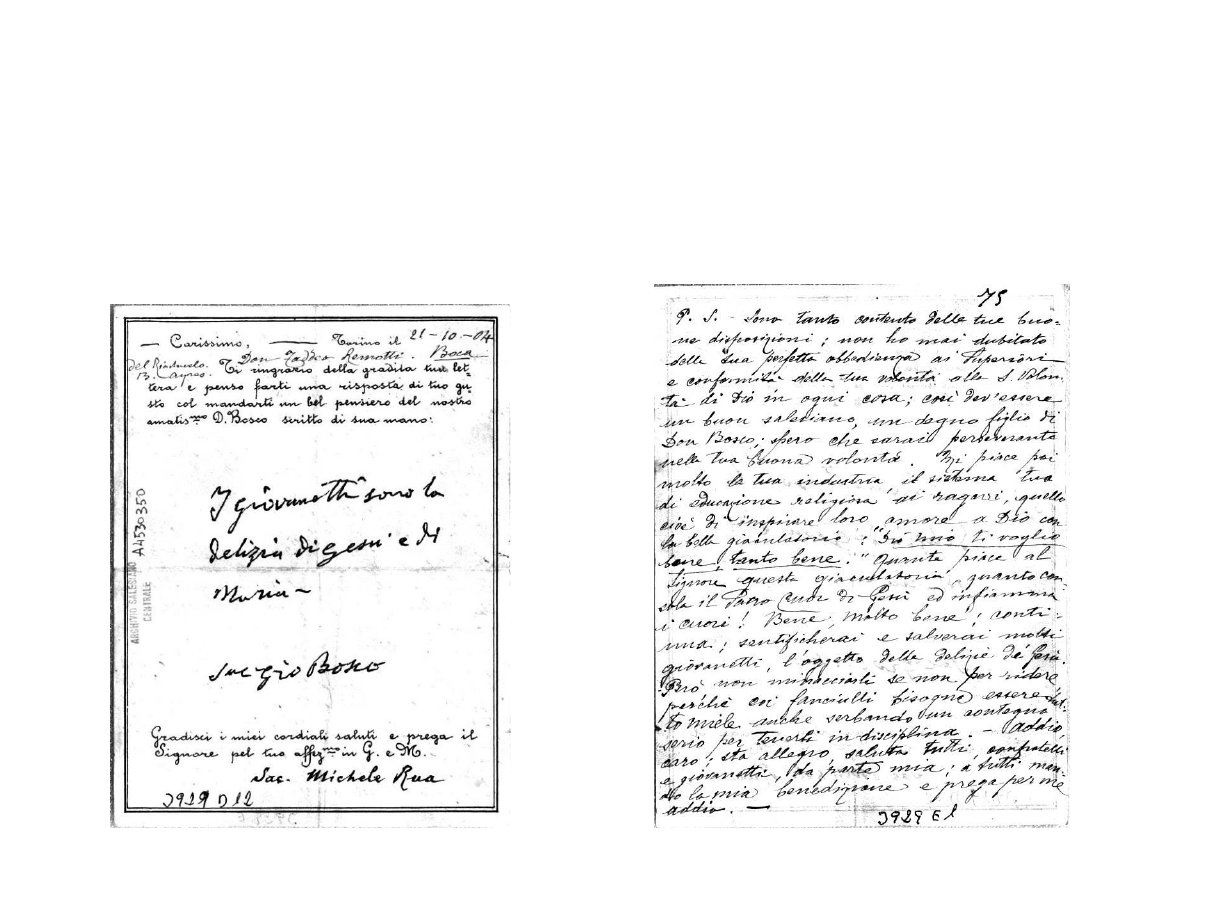 — Carissimo, — Torino il 21-10-04
Don Taddeo Remotti. Boca
del Riachuelo. Ti ringrazio della gradita tua let-
B. Ayres.
tera e penso farti una risposta di tuo gu-
sto col mandarti un bel pensiero del nostro
amatis.mo D. Bosco scritto di sua mano:
I giovanetti sono la
delizia di Gesù e di
Maria ~
Sac Gio Bosco
Gradisci i miei cordiali saluti e prega il
Signore pel tuo affez.mo in G. e M.
Sac. Michele Rua
3929 D 12
A4530350
ARCHIVIO SALESIANO
CENTRALE
75
P. S. - Sono tanto contento delle tue buo-
ne disposizioni; non ho mai dubitato
della tua perfetta obbedienza ai Superiori
e conformità della tua volontà alla S. Volon-
tà di Dio in ogni cosa; così dev'essere
un buon salesiano, un degno figlio di
Don Bosco; spero che sarai perseverante
nella tua buona volontà. Mi piace poi
molto la tua industria il sistema tuo
di educazione religiosa ai ragazzi, quello
cioè di inspirare loro amore a Dio con
la bella giaculatoria: Dio mio ti voglio
bene, tanto bene." Quanto piace al
Signore questa giaculatoria, quanto con-
sola il Sacro Cuor di Gesù ed infiamma
i cuori! Bene, molto bene; conti-
nua; santificherai e salverai molti
giovanetti, l'oggetto delle delizie di Gesù.
Però non minacciarli se non per ridere
perchè coi fanciulli bisogna essere tut-
to miele anche serbando un contegno
serio per tenerli in disciplina. - Addio,
caro; sta allegro saluta tutti, confratelli
e giovanetti, da parte mia; a tutti man-
do la mia benedizione e prega per me
addio. —
3929 E 1